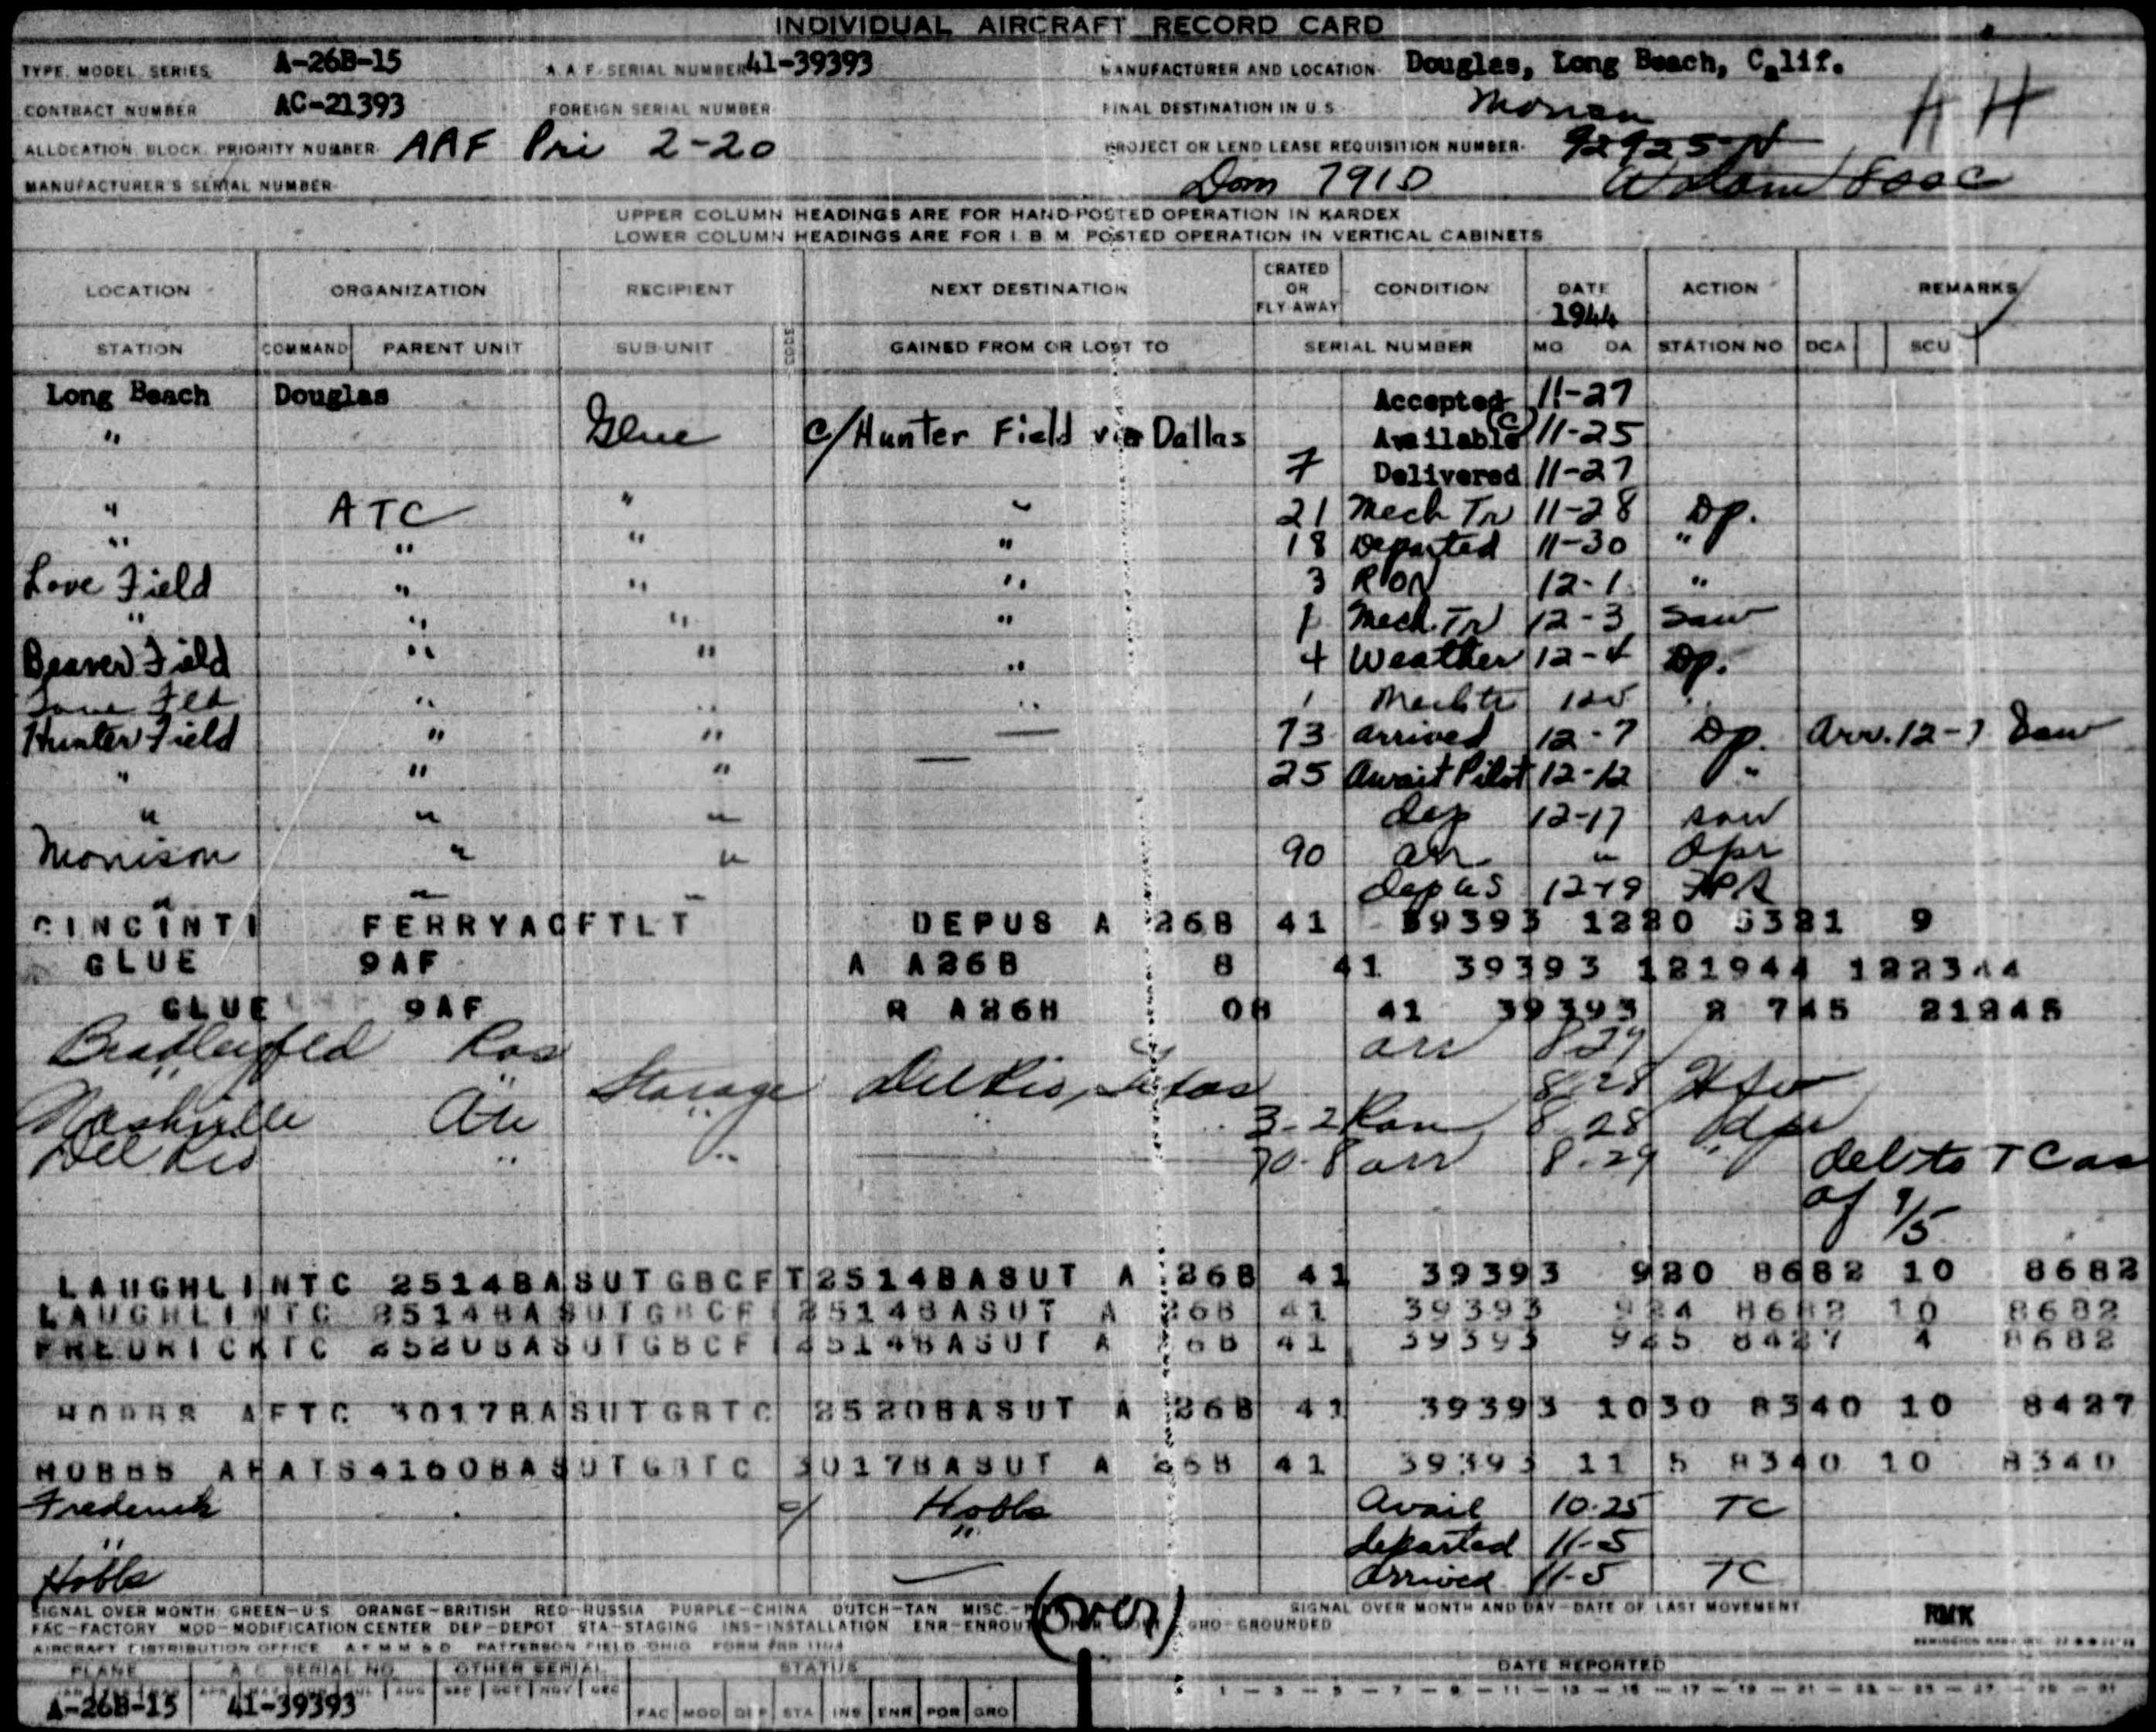 INDIVIDUAL AIRCRAFT RECORD CARD
TYPE, MODEL, SERIES A-26B-15 A. A. F. SERIAL NUMBER 41-39393 MANUFACTURER AND LOCATION Douglas, Long Beach, Calif.
CONTRACT NUMBER AC-21393 FOREIGN SERIAL NUMBER FINAL DESTINATION IN U.S.
ALLOCATION, BLOCK, PRIORITY NUMBER AAF Pri 2-20 PROJECT OR LEND LEASE REQUISITION NUMBER 92925-N
MANUFACTURER'S SERIAL NUMBER Dom 791D
UPPER COLUMN HEADINGS ARE FOR HAND-POSTED OPERATION IN KARDEX
LOWER COLUMN HEADINGS ARE FOR I. B. M. POSTED OPERATION IN VERTICAL CABINETS
LOCATION ORGANIZATION RECIPIENT NEXT DESTINATION CRATED OR FLY-AWAY CONDITION DATE 1944 ACTION REMARKS
STATION COMMAND PARENT UNIT SUB-UNIT GAINED FROM OR LOST TO SERIAL NUMBER MO DA STATION NO DCA SCU
Long Beach Douglas Accepted 11-27
" Glue c/Hunter Field via Dallas Available 11-25
7 Delivered 11-27
" ATC " " 21 Mech Tr 11-28 Dp.
" " " " 18 Departed 11-30 "
Love Field " " " 3 RON 12-1 "
" " " " 1 Mech. Tr 12-3
Beaver Field " " " 4 Weather 12-4 Dp.
" " " 1 Mech tr 12-5 "
Hunter Field " " — 73 arrived 12-7 Dp. Arr. 12-7
" " " — 25 Await Pilot 12-12 "
" " " dep 12-17
Morrison " " 90 arr " Opr
" " " dep US 12-19
CINCINTI FERRYACFTLT DEPUS A 26B 41 39393 1220 5321 9
GLUE 9AF A A26B B 41 39393 121944 122344
GLUE 9AF R A26H OH 41 39393 2 745 21245
arr 8 27
" " Storage Del Rio, Texas 8/28
Nashville " " 3-2 Ron 8 28
Del Rio " " — 70-8 arr 8-29 " del to TC as
of 9/5
LAUGHLINTC 2514BASUTGBCFT2514BASUT A 26B 41 39393 920 8682 10 8682
LAUGHLINTC 2514BASUTGBCFT2514BASUT A 26B 41 39393 924 8682 10 8682
FREDRICKTC 2520BASUTGBCFT2514BASUT A 26B 41 39393 925 8427 4 8682
HOBBS AFTC 3017BASUTGBTC 2520BASUT A 26B 41 39393 1030 8340 10 8427
HOBBS AFATS4160BASUTGBTC 3017BASUT A 26B 41 39393 11 5 8340 10 8340
Frederick c/ Hobbs Avail 10-25 TC
" " departed 11-5
Hobbs — arrived 11-5 TC
SIGNAL OVER MONTH: GREEN-U.S. ORANGE-BRITISH RED-RUSSIA PURPLE-CHINA DUTCH-TAN MISC.- (over) SIGNAL OVER MONTH AND DAY-DATE OF LAST MOVEMENT
FAC-FACTORY MOD-MODIFICATION CENTER DEP-DEPOT STA-STAGING INS-INSTALLATION ENR-ENROUTE GRO-GROUNDED RMK
AIRCRAFT DISTRIBUTION OFFICE A F M M & D PATTERSON FIELD OHIO FORM
PLANE A. C. SERIAL NO. OTHER SERIAL STATUS DATE REPORTED
AUG SEP OCT NOV DEC 1 - 3 - 5 - 7 - 9 - 11 - 13 - 15 - 17 - 19 - 21 - 23 - 25 - 27 - 29 - 31
A-26B-15 41-39393 FAC MOD DEP STA INS ENR POR GRO